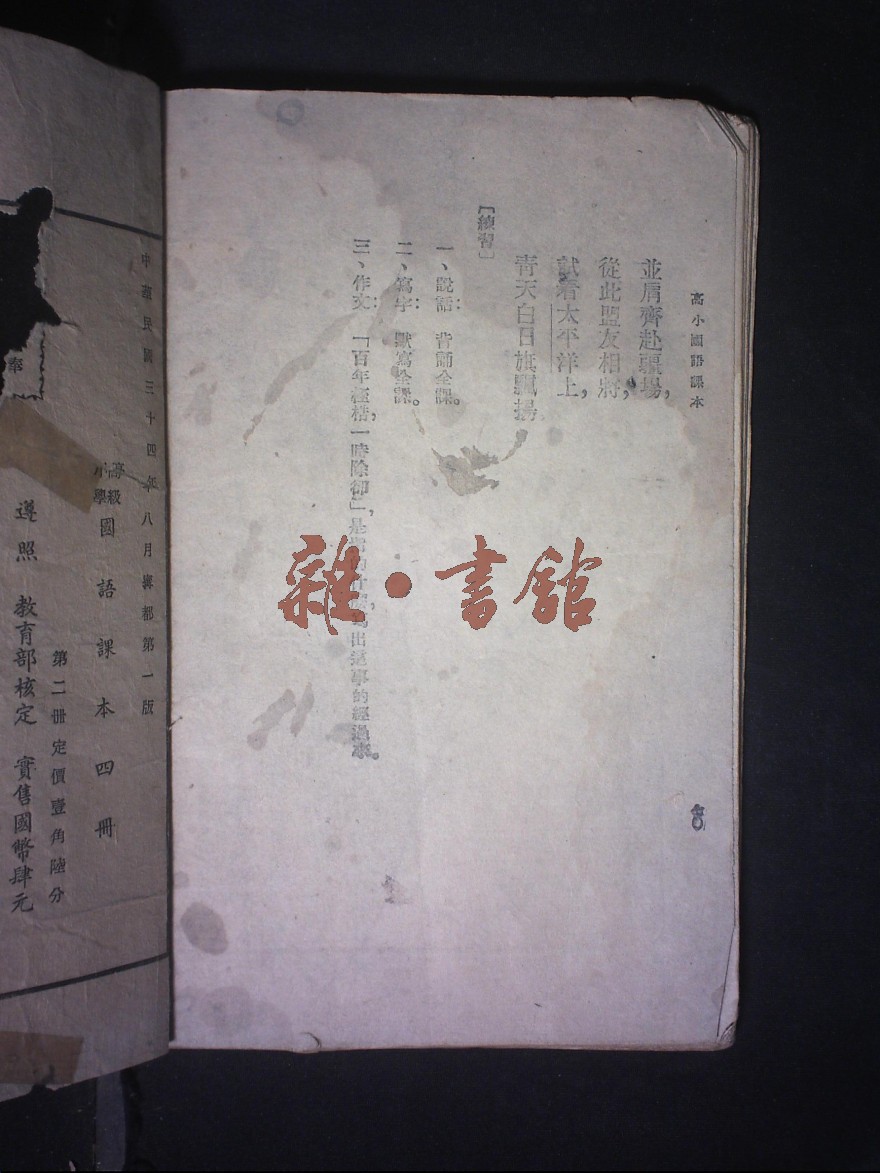 高小國語課本
並肩齊赴疆場，
從此盟友相將，
試看太平洋上，
青天白日旗飄揚。
〔練習〕
一、說話：背誦全課。
二、寫字：默寫全課。
三、作文：「百年桎梏，一時除卻」，是 出這事的經過來。
雜·書館
中華民國三十四年八月 都第一版
高級小學國語課本四冊
第二冊定價壹角陸分
遵照教育部核定實售國幣肆元
奉